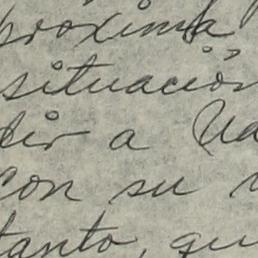 próxima
situación
dir a Ud
con su
tanto, qu